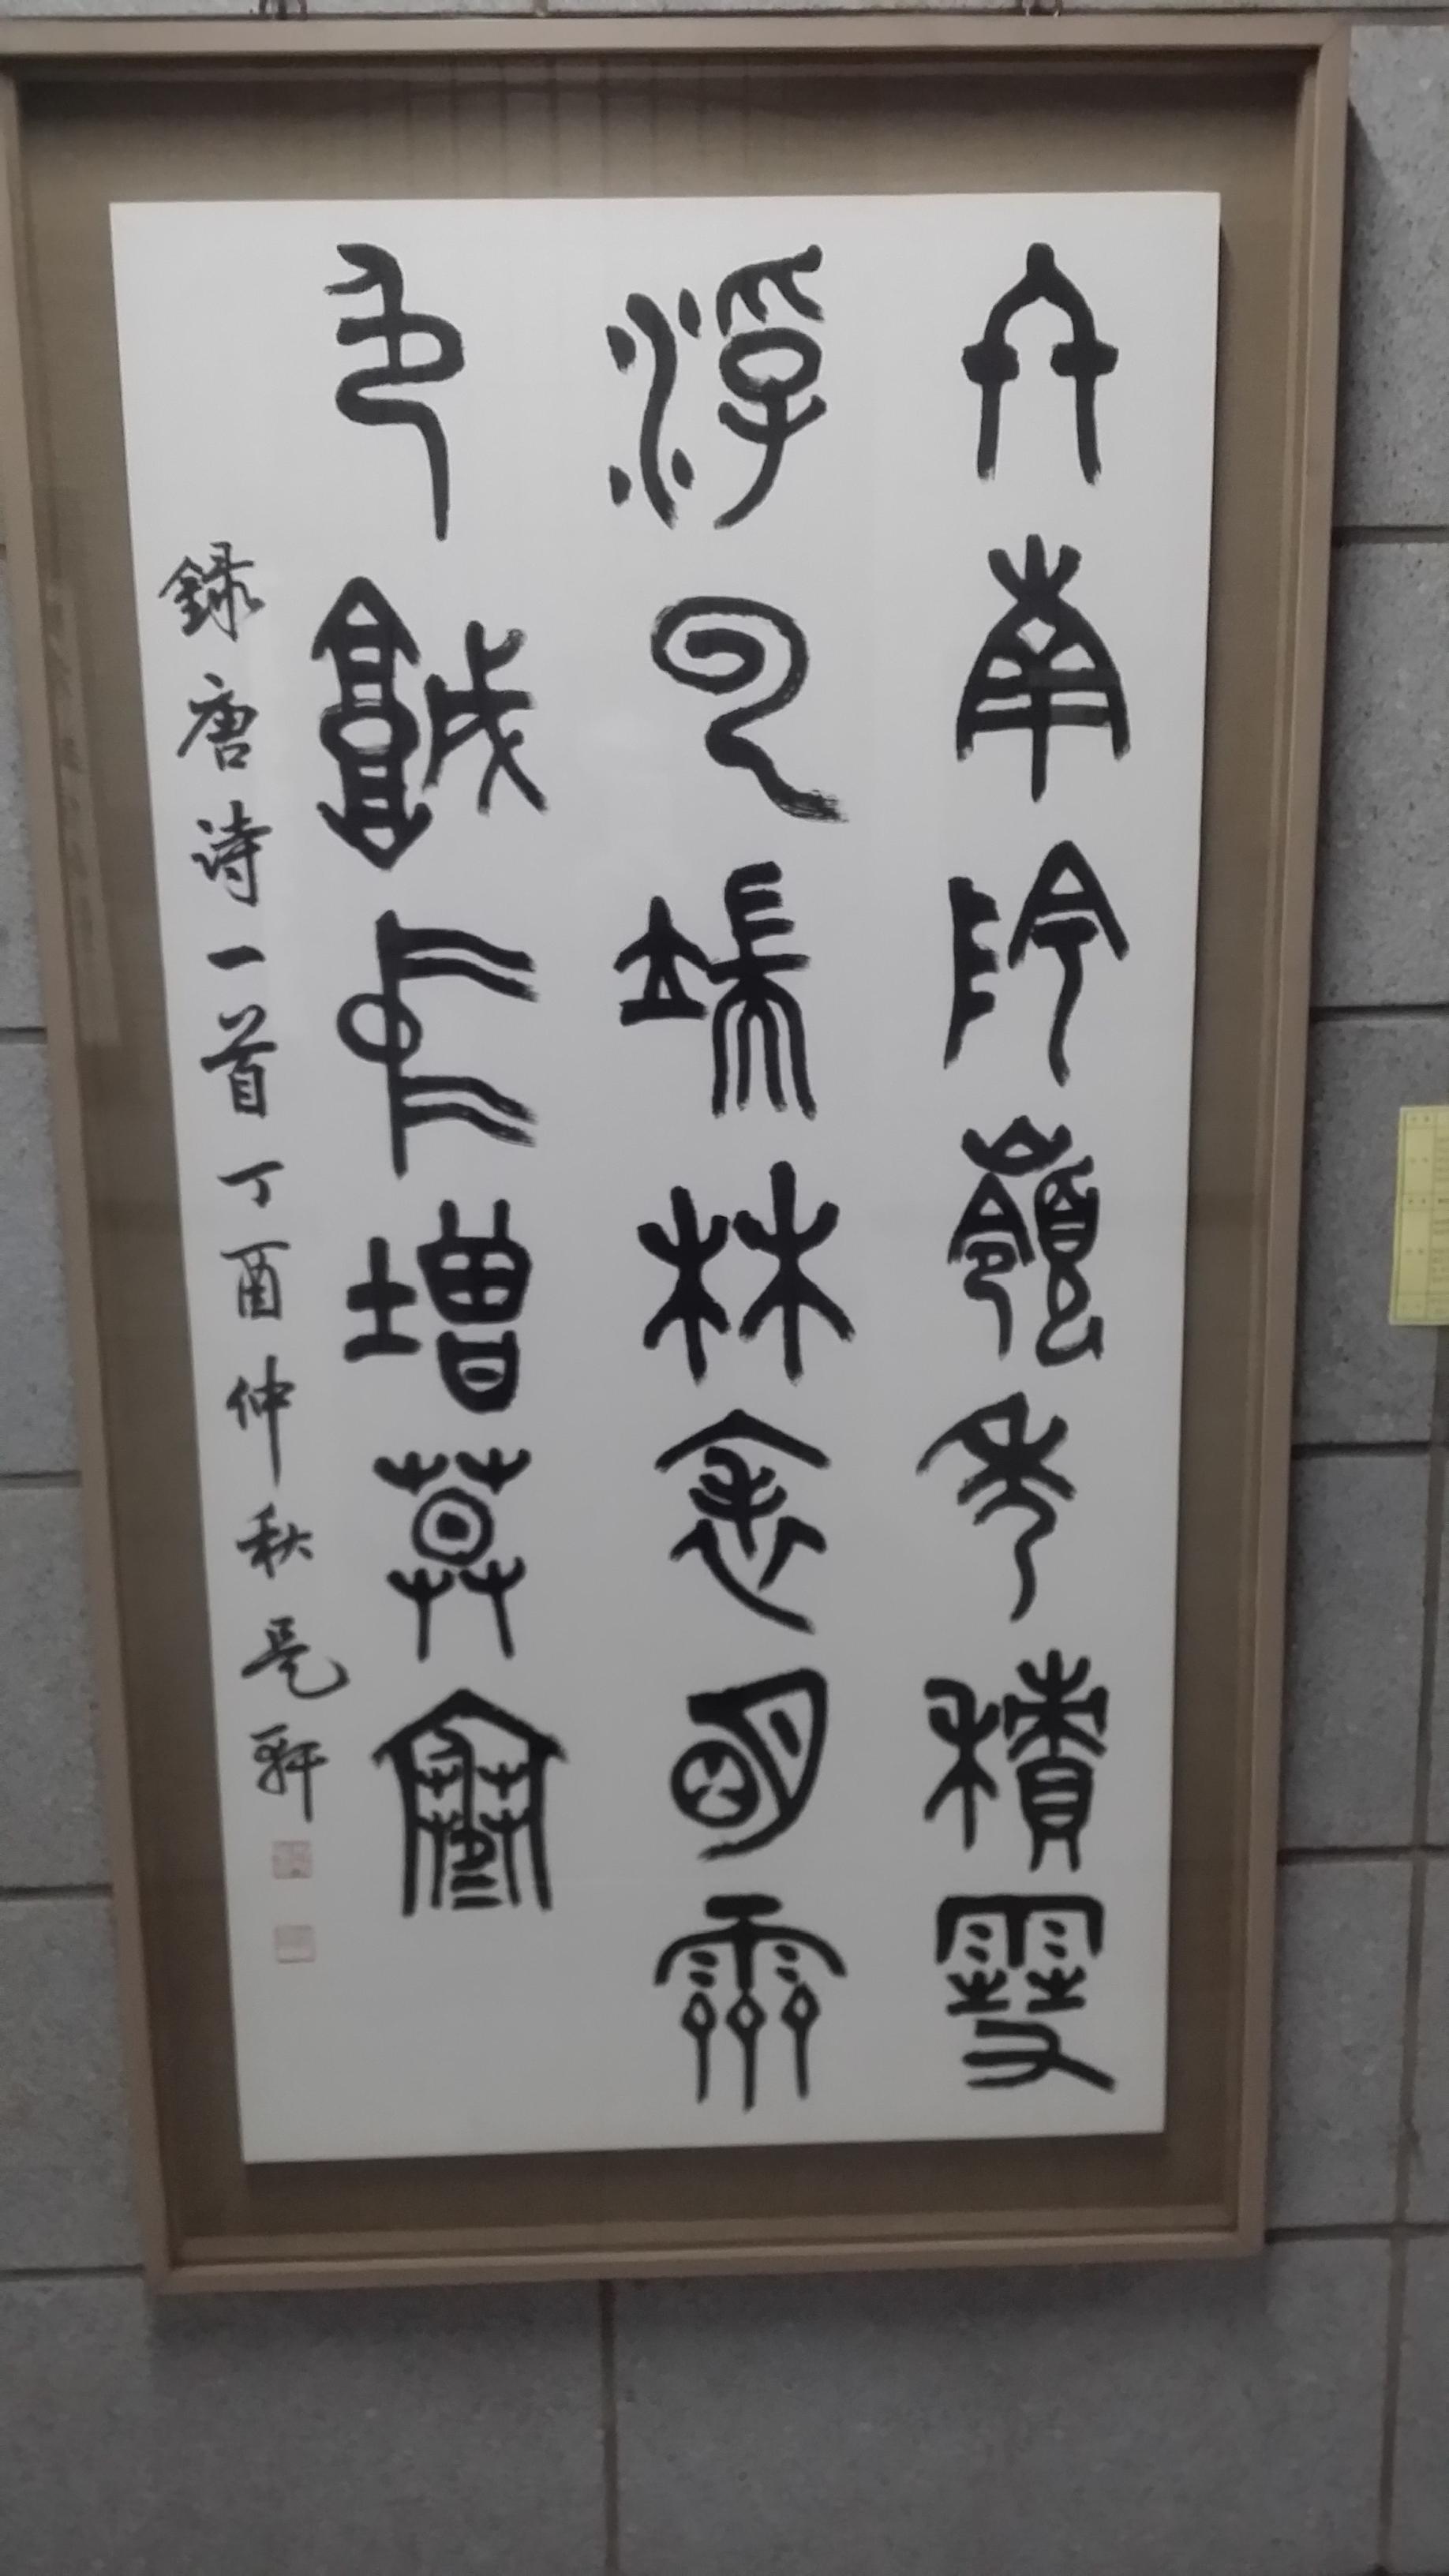 終南陰嶺秀積雪
浮雲端林表明霽
色城中增暮寒
錄唐詩一首丁酉仲秋